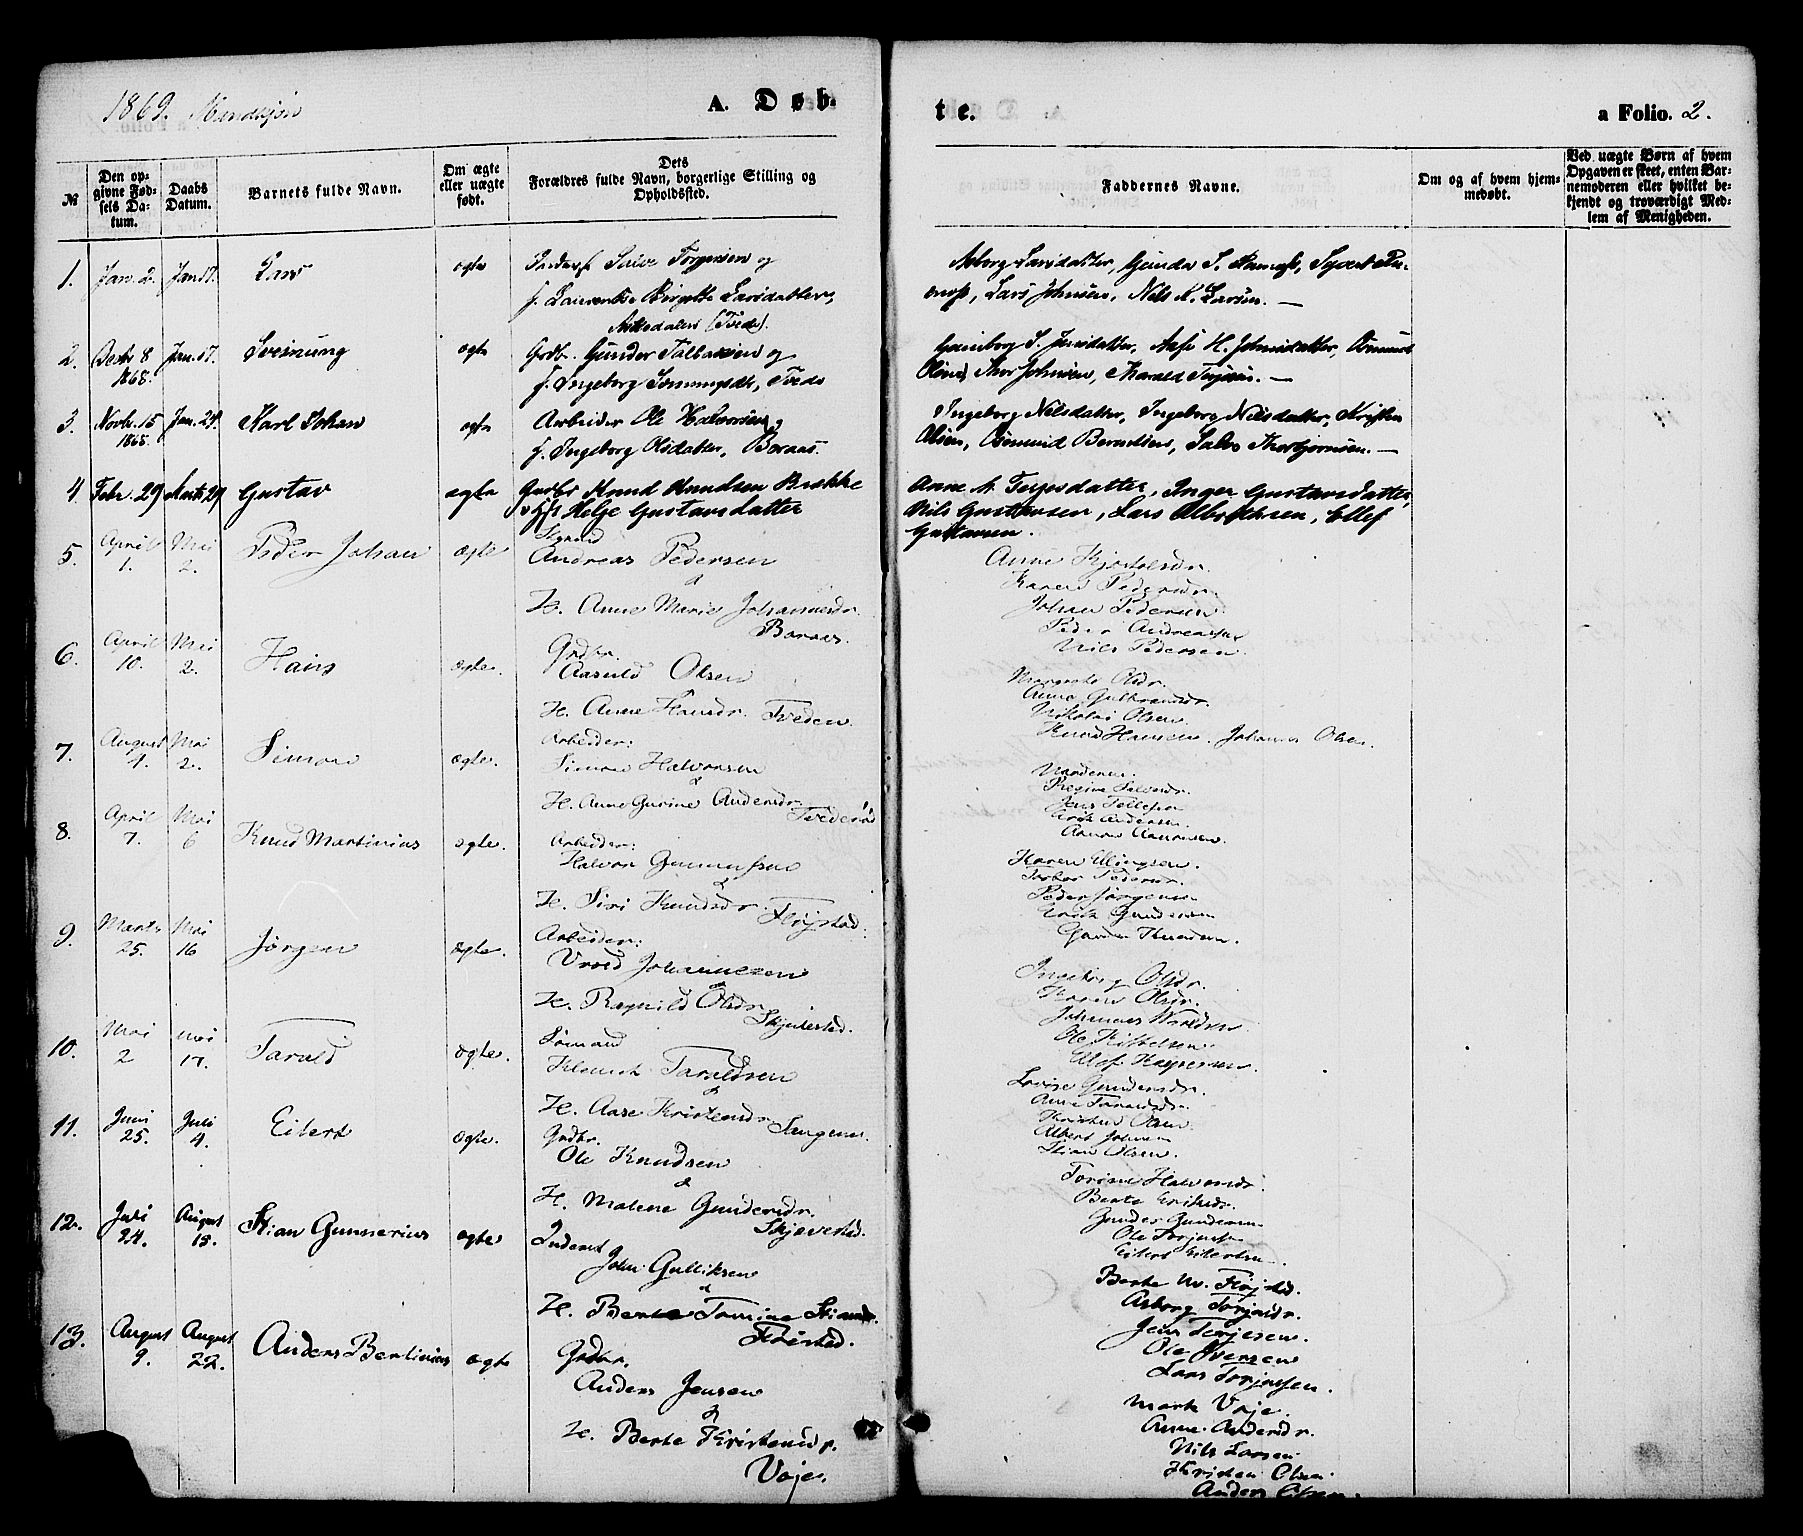 1869. Mandkjön
A. Døb-
te.
a Folio. 2.
№
Den opgivne Fødsels Datum.
Daabs Datum.
Barnets fulde Navn.
Om ægte eller uægte født.
Dets Forældres fulde Navn, borgerlige Stilling og Opholdssted.
Faddernes Navne.
Om og af hvem hjemmedøbt.
Ved uægte Børn af hvem Opgaven er skeet, enten Barnemoderen eller hvilket bekjendt og troværdigt Medlem af Menigheden.
1. Jan. 2. Jan 17. Lars ægte Torgersen og
Birgitte Larsdatter,
(Tvede).
Asborg Larsdatter, Gunder S.
Lars Johnsen, Nils K. Larsen. —
2. Decbr 8 1868. Jan. 17. Sveinung ægte Grdbr. Gunder Tallaksen og
f. Ingeborg Tvede
Gunborg S. Jensdatter, H. Johnsdatter,
Thor Johnsen, Harald Terjesen. —
3. Novbr. 15 1868. Jan. 24. Karl Johan ægte Arbeider Ole Halvorsen og
f. Ingeborg Olsdatter, Boraas.
Ingeborg Nilsdatter, Ingeborg Nilsdatter, Kristen
Olsen, Osmund Berentsen, Salve Thorbjørnsen. —
4 Febr. 29 Marts 29 Gustav ægte Gaardbr Knud Knudsen Brække
Helje Gustavsdatter
Anne N. Terjesdatter, Inger Gustavsdatter,
Nils Gustavsen, Lars Albrethsen, Ellef
Gustavsen.
5. April 1. Mai 2. Peder Johan ægte Sømand
Andreas Pedersen
&
H. Anne Marie Johannesdr.
Boraas.
Anne Kjøstelsdr.
Karen Pedersdr.
Johan Pedersen
Peder Andreassen
Nils Pedersen
6. April 10. Mai 2. Hans ægte. Grdbr.
Aasuld Olsen
H. Anne Hansdr. Tveden.
Margrethe Olsdr.
Anne Gulbransdr.
Nikolai Olsen
Knud Hansen. Johannes Olsen.
7. August 4. Mai 2. Simon ægte. Arbeider:
Simon Halvorsen
&
H. Anne Gurine Andersdr.
Tvederød
Moderen.
Regine Salvesdr.
Jens Tellefsen
Erik Andersen
8. April 7. Mai 6 Knud Martinius ægte. Arbeider:
Halvor Gunnufsen
&
H. Siri Knudsdr. Fløjstad.
Karen Ellingsen.
Torbor Pedersdr.
Peder Jørgensen
Erik Gundersen
Gunder Knudsen.
9. Marts 25. Mai 16 Jørgen ægte. Arbeider:
Vrold Johannesen
&
H. Ragnild Olsdr.
Skjulestad.
Ingeborg Olsdr.
Karen Olsdr.
Johannes Wroldsen
Ole Kittelsen
Ellef Kaspersen
10. Mai 2 Mai 17. Tarald ægte. Sømand
Klemet Taraldsen
&
H. Aase Kristensdr.
Sangenes.
Lovise Gundersdr.
Anne Taraldsdr.
Kristen Olsen
Albert Johnsen
Stian Olsen.
11. Juni 25. Juli 4. Eilert ægte. Grdbr.
Ole Knudsen
&
H. Malene Gundersdr.
Skjevestad.
Torine Halvorsdr.
Berte Eriksdr.
Gunder Gundersen
Ole Torjussen
Eilert Eilertsen.
12. Juli 24. August 15. Stian Gunnerius ægte Inderst
John Gulliksen
&
H. Berte Tomine Stiansdr.
Fløistad.
Berte M. Fløjstad.
Asborg Torjusdr.
Jens Terjesen.
Ole Iversen
Lars Torjussen.
13. August 9. August 22. Anders Bertinius ægte Grdbr.
Anders Jensen
&
H. Berte Kristensdr.
Voje.
Marte Voje.
Anne Andersdr.
Nils Larsen
Kristen Olsen
Anders Olsen.